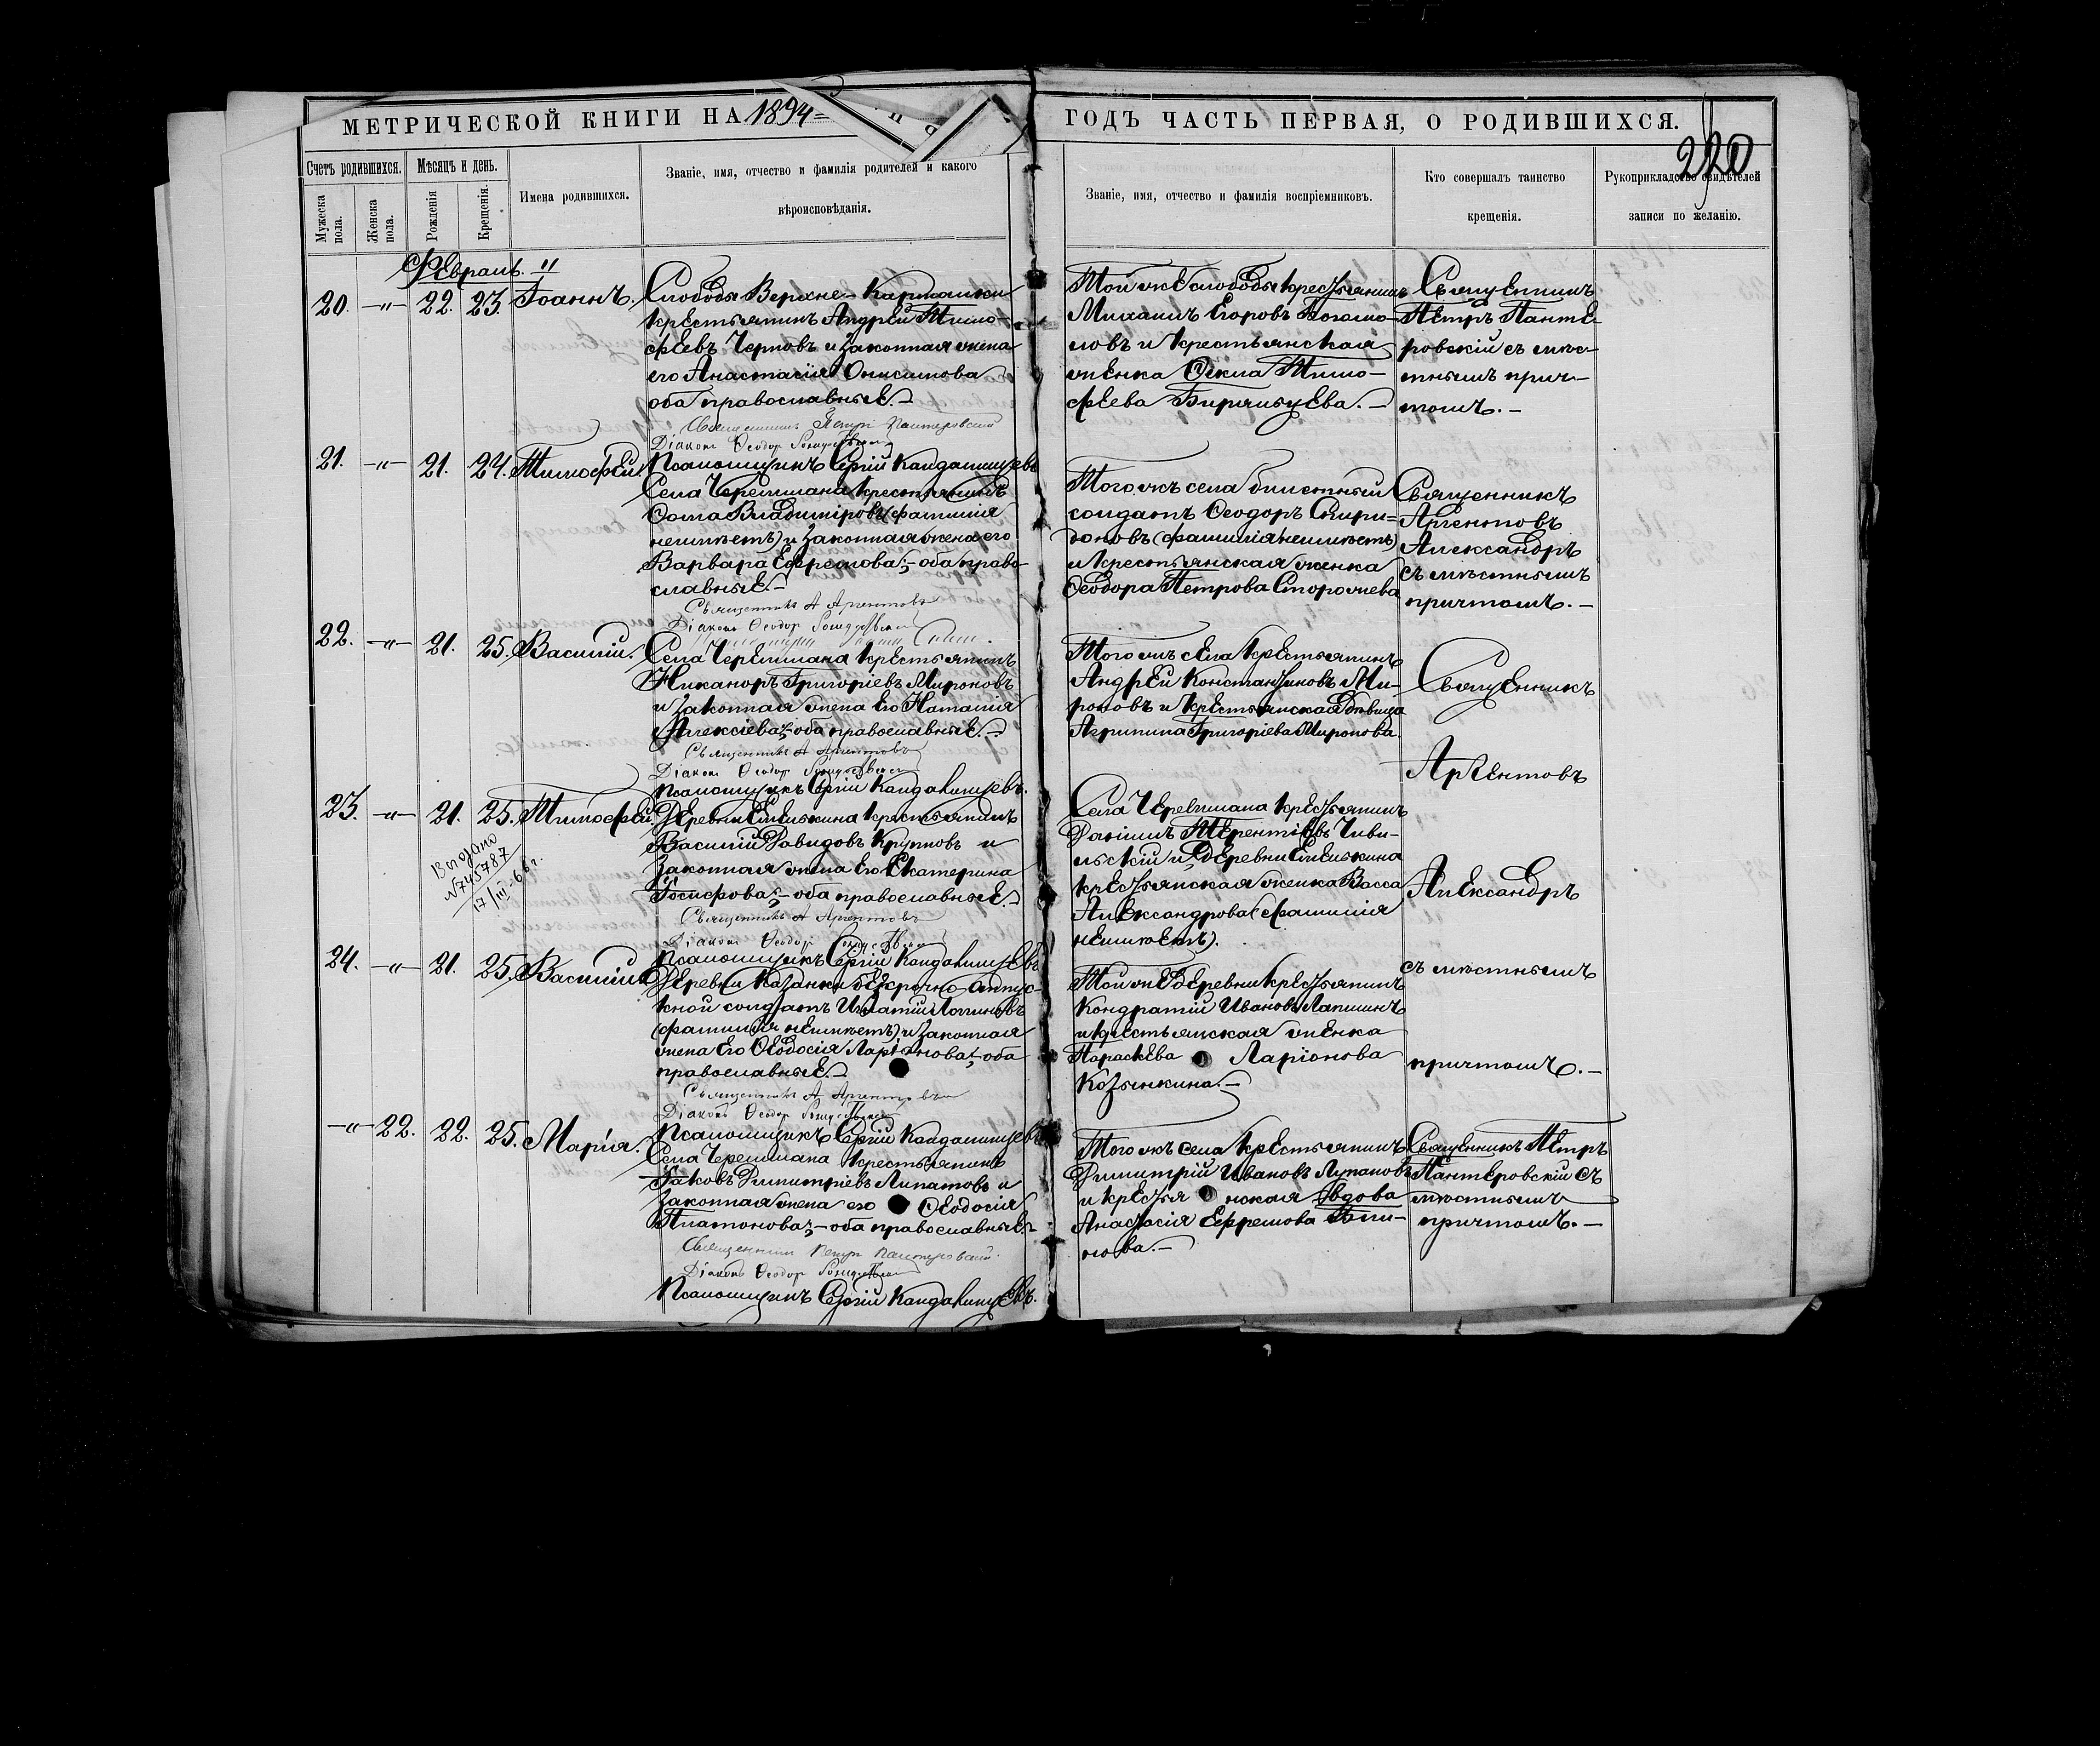 МЕТРИЧЕСКОЙ КНИГИ НА 1894 =
ГОДЪ ЧАСТЬ ПЕРВАЯ, О РОДИВШИХСЯ.
220
Счетъ родившихся.
Мужеска пола.
Женска пола.
Мѣсяцъ и день.
Рожденія
Крещенія.
Имена родившихся.
Званіе, имя, отчество и фамилія родителей и какого
вѣроисповѣданія.
Званіе, имя, отчество и фамилія воспріемниковъ.
Кто совершалъ таинство
крещенія.
Рукоприкладство свидѣтелей
записи по желанію.
Февраль. "
20. -"- 22. 23. Іоаннъ.
Слободы Верхне-Кармалки
крестьянинъ Андрей Тимо-
феевъ Черновъ и законная жена
его Анастасія Онисимова
оба православные.-
Священникъ Петръ Пантеровский
Діаконъ Ѳеодоръ
Псаломщикъ Сергій Кандалинцевъ
Той же слободы крестьянинъ
Михаилъ Егоровъ Богомо-
ловъ и крестьянская
женка Ѳекла Тимо-
феева Бирялцева.-
Священникъ
Петръ Панте-
ровскій съ мѣс-
тнымъ прич-
томъ.-
21. -"- 21. 24. Тимофей.
Села Черемшана крестьянинъ
Ѳома Владимировъ (фамилія
неимѣетъ) и законная жена его
Варвара Ефремова;- оба право-
славные.-
Священникъ А Аргентовъ
Діаконъ Ѳеодоръ
Того жъ села билетный
солдатъ Ѳеодоръ Спири=
доновъ (фамилія неимѣетъ)
и крестьянская женка
Ѳеодора Петрова Сторожева
Священникъ
Аргентовъ
Александръ
съ мѣстнымъ
причтомъ.-
22. -"- 21. 25. Василій.
Села Черемшана крестьянинъ
Никаноръ Григоріевъ Мироновъ
и законная жена его Наталія
Алексіева;- оба православные.-
Священникъ А Аргентовъ
Діаконъ Ѳеодоръ
Псаломщикъ Сергій Кандалинцевъ.
Того жъ села крестьянинъ
Андрей Константиновъ Ми-
роновъ и крестьянская дѣвица
Агрипина Григоріева Миронова.
Священникъ
Аргентовъ
23. -"- 21. 25. Тимофей.
Деревни Елшкина крестьянинъ
Василій Давидовъ Крупновъ и
законная жена его Екатерина
Іосифова;- оба православные.-
Священникъ А Аргентовъ
Діаконъ Ѳеодоръ
Псаломщикъ Сергій Кандалинцевъ
Выдано
№745787
17/III-66г.
Села Черемшана крестьянинъ
Даніилъ Терентіевъ Чиви-
льскій и деревни Елшкина
крестьянская женка Васса
Александрова (фамилія
неимѣетъ).
Александръ
24. -"- 21. 25. Василій
Деревни Казанки безсрочно-отпус-
кной солдатъ Ипатій Логиновъ
(фамилія неимѣетъ) и законная
жена его Ѳеодосія Ларіонова;- оба
православные.-
Священникъ А Аргентовъ
Діаконъ Ѳеодоръ
Псаломщикъ Сергій Кандалинцевъ
Той же деревни крестьянинъ
Кондратій Ивановъ Лапшинъ
и крестьянская женка
Параскева Ларіонова
Козынкина.-
съ мѣстнымъ
причтомъ.-
-"- 22. 22. 25. Марія.
Села Черемшана крестьянинъ
Іаковъ Димитріевъ Липатовъ и
законная жена его Ѳеодосія
Платонова;- оба православные.-
Священникъ Петръ Пантеровский.
Діаконъ Ѳеодоръ
Псаломщикъ Сергій Кандалинцевъ.
Того жъ села крестьянинъ
Димитрій Ивановъ Лупановъ
и крестьянская вдова
Анастасія Ефремова Бли-
нова.-
Священникъ Петръ
Пантеровскій съ
мѣстнымъ
причтомъ.-